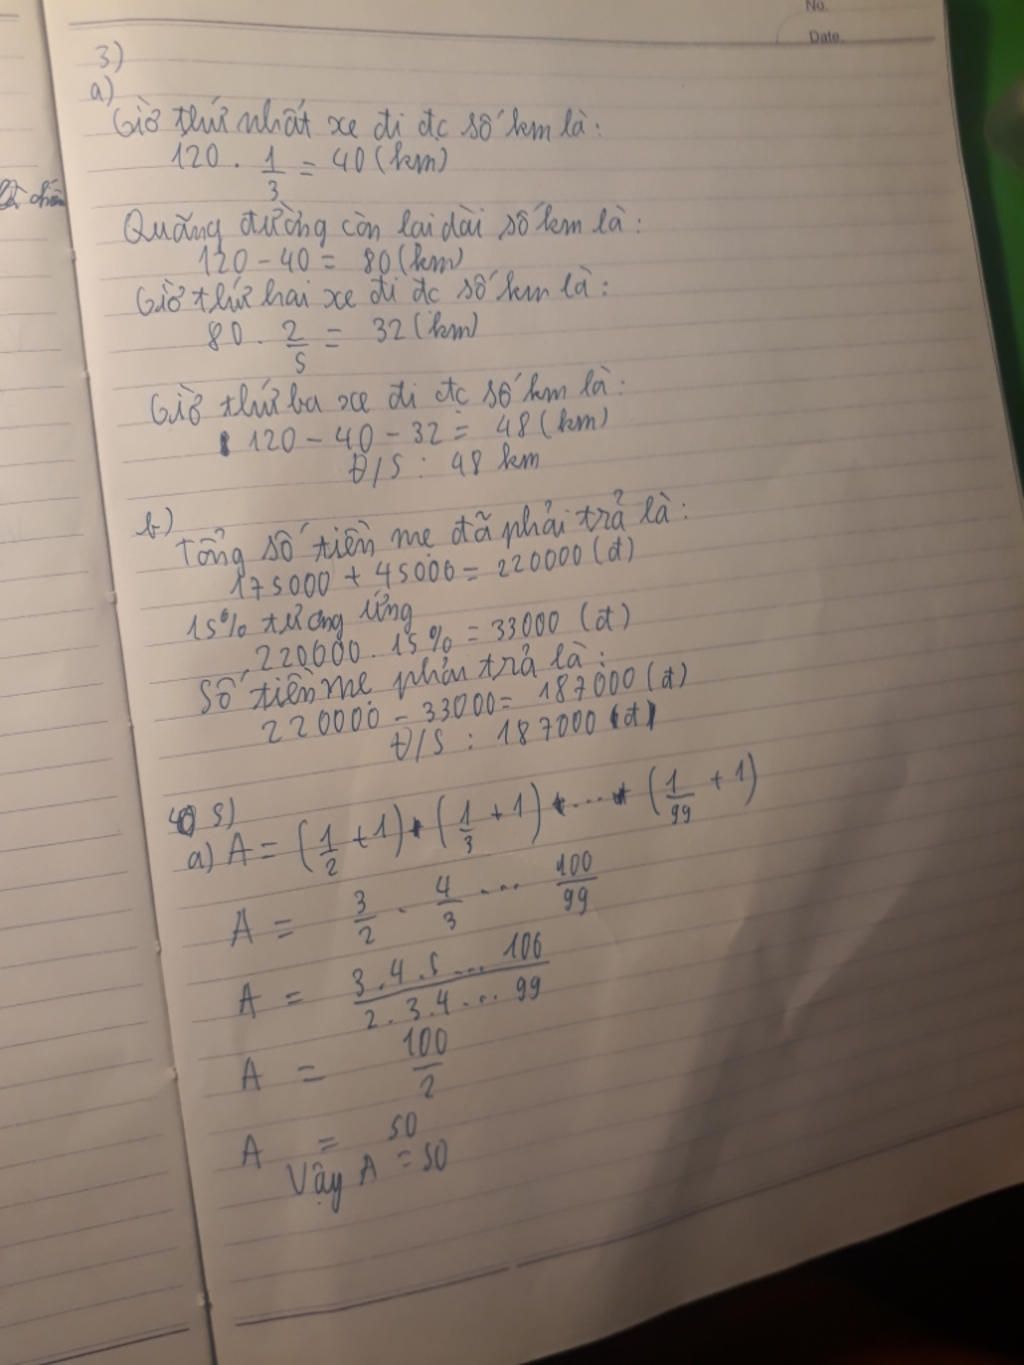 No.
Date.
3)
a)
Giờ thứ nhất xe đi đc số km là:
120 . 1/3 = 40 (km)
Quãng đường còn lại dài số km là:
120 - 40 = 80 (km)
Giờ thứ hai xe đi đc số km là:
80 . 2/5 = 32 (km)
Giờ thứ ba xe đi đc số km là:
120 - 40 - 32 = 48 (km)
Đ/S : 48 km
b)
Tổng số tiền mẹ đã phải trả là:
175000 + 45000 = 220000 (đ)
15% tương ứng
220000 . 15% = 33000 (đ)
Số tiền mẹ phải trả là:
220000 - 33000 = 187000 (đ)
Đ/S : 187000 (đ)
5)
a) A = (1/2 + 1) . (1/3 + 1) . ... . (1/99 + 1)
A = 3/2 . 4/3 ... 100/99
A = 3.4.5...100/2.3.4...99
A = 100/2
A = 50
Vậy A = 50